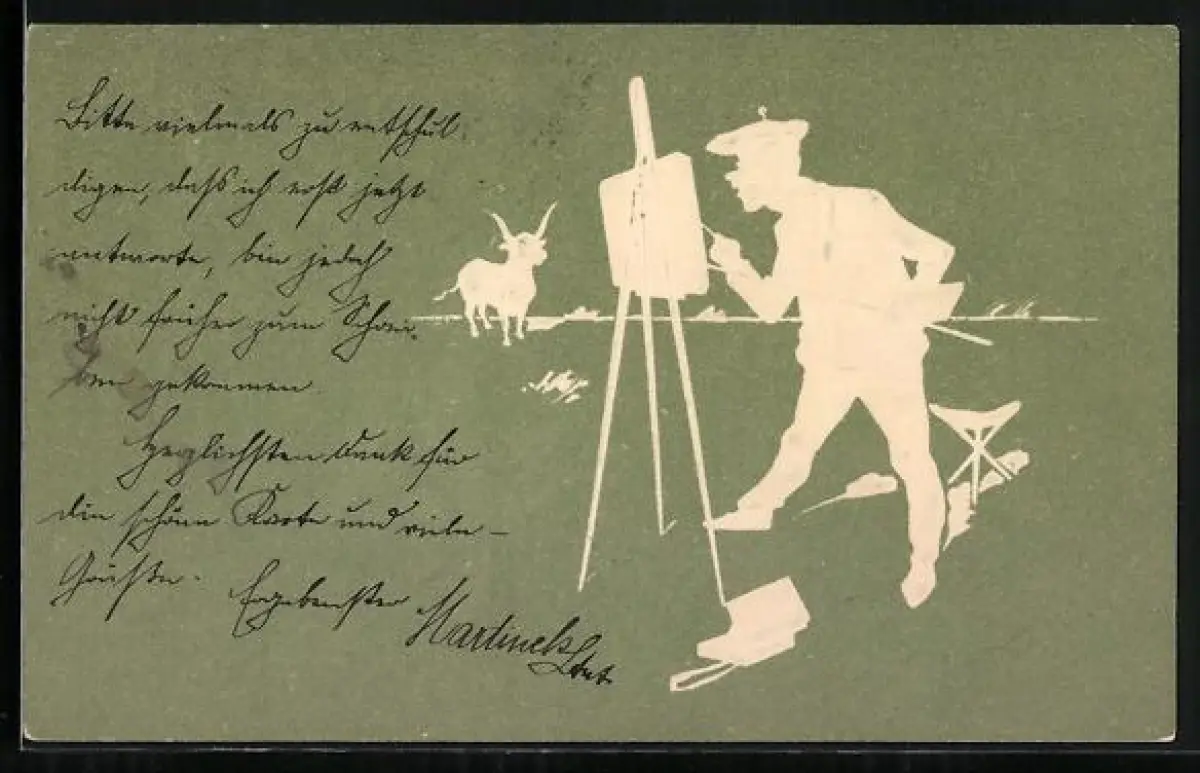 Bitte vielmals zu entschul
digen, dass ich erst jetzt
antworte, bin jedoch
nicht früher zum Schrei-
ben gekommen.
Herzlichsten Dank für
die schöne Karte und viele –
Grüße. Ergebenster Martinek
Ltnt.